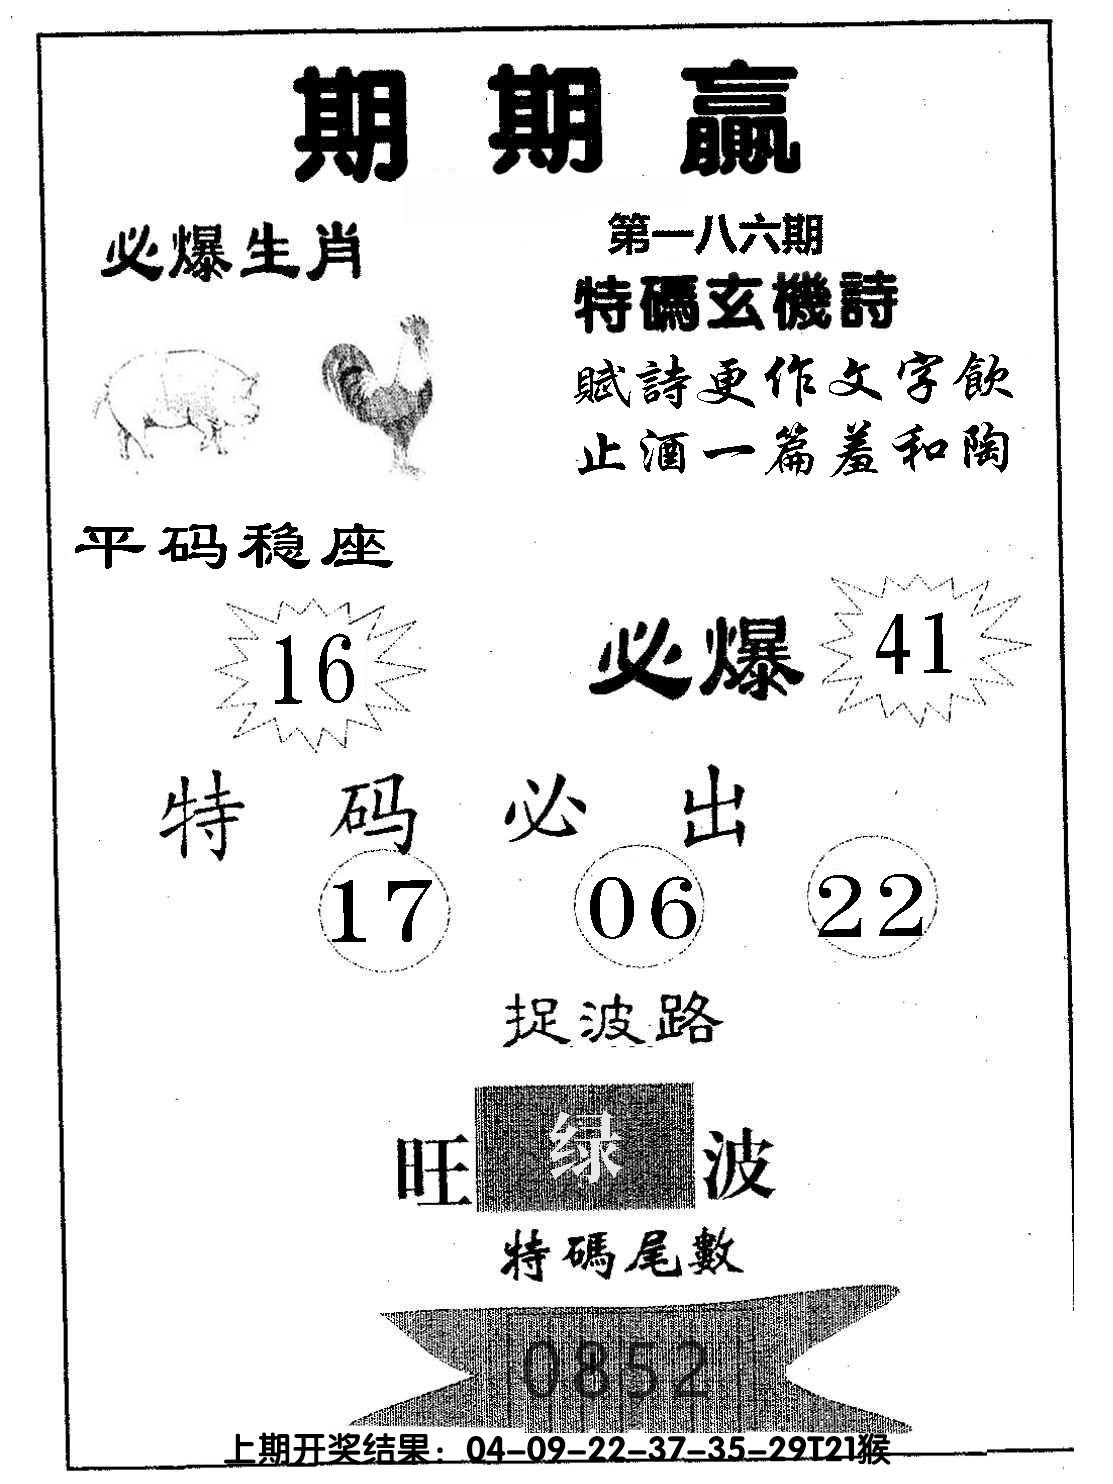 期期贏
必爆生肖
第一八六期
特碼玄機詩
賦詩更作文字飲
止酒一篇羞和陶
平码稳座
16
必爆 41
特码必出
17 06 22
捉波路
旺绿波
特碼尾數
0852
上期开奖结果：04-09-22-37-35-29T21猴